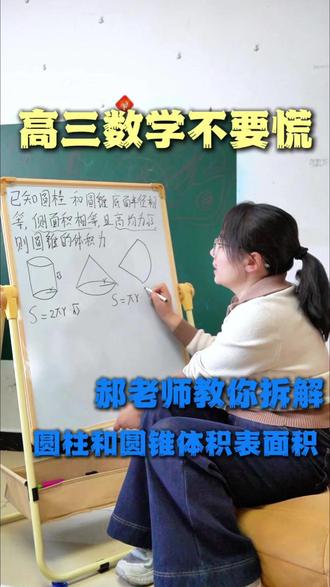 高三数学不要慌
已知圆柱和圆锥底面半径相
等,侧面积相等,且高均为√3
则圆锥的体积为
√3
S=2πr·√3
S=πr
郝老师教你拆解
圆柱和圆锥体积表面积